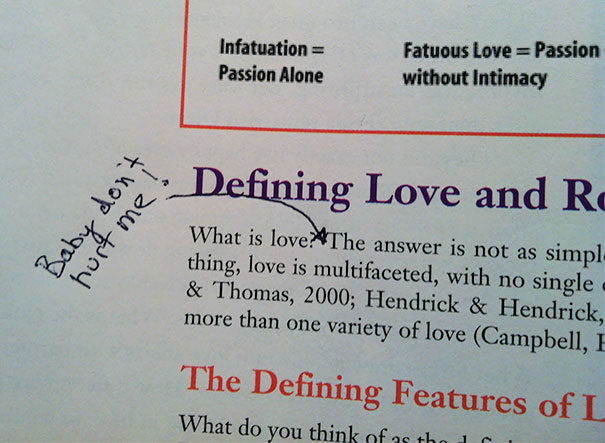 Infatuation =
Passion Alone
Fatuous Love = Passion
without Intimacy
Baby don't
hurt me!
Defining Love and
What is love? The answer is not as
thing, love is multifaceted, with no single
& Thomas, 2000; Hendrick & Hendrick,
more than one variety of love (Campbell,
The Defining Features of
What do you think of as the